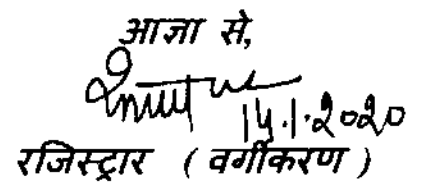 आज्ञा से,
14.1.2020
रजिस्ट्रार ( वर्गीकरण )